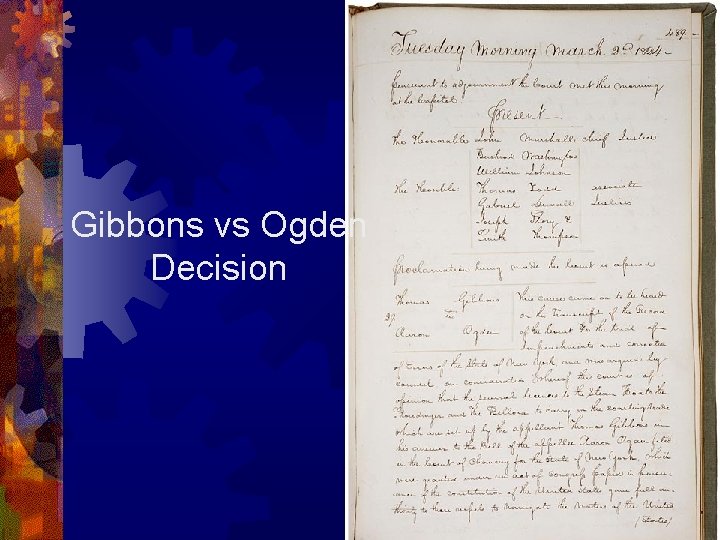 Gibbons vs Ogden
Decision
489
Tuesday Morning March 2nd 1824
Pursuant to adjournment the Court met this morning
at the Capitol
Present
The Honorable John Marshall Chief Justice
Bushrod Washington
William Johnson
The Honble Thomas Todd associate
Gabriel Duvall Justices
Joseph Story &
Smith Thompson
Proclamation being made the Court is opened
Thomas Gibbons
Aaron Ogden
This cause came on to be heard
on the Transcript of the Record
of the Court for the trial of
Impeachments and correction
of errors of the State of New York and was argued by
counsel on consideration whereof this court is of
opinion that the several licenses to the Steam Boats the
and the Bellona to carry on the coasting trade
which are set up by the appellant Thomas Gibbons in
his answer to the Bill of the appellee Aaron Ogden filed
in the Court of Chancery for the State of New York which
were granted under an act of Congress passed in
of the constitution of the United States gave full
to those vessels to navigate the waters of the United
/States/